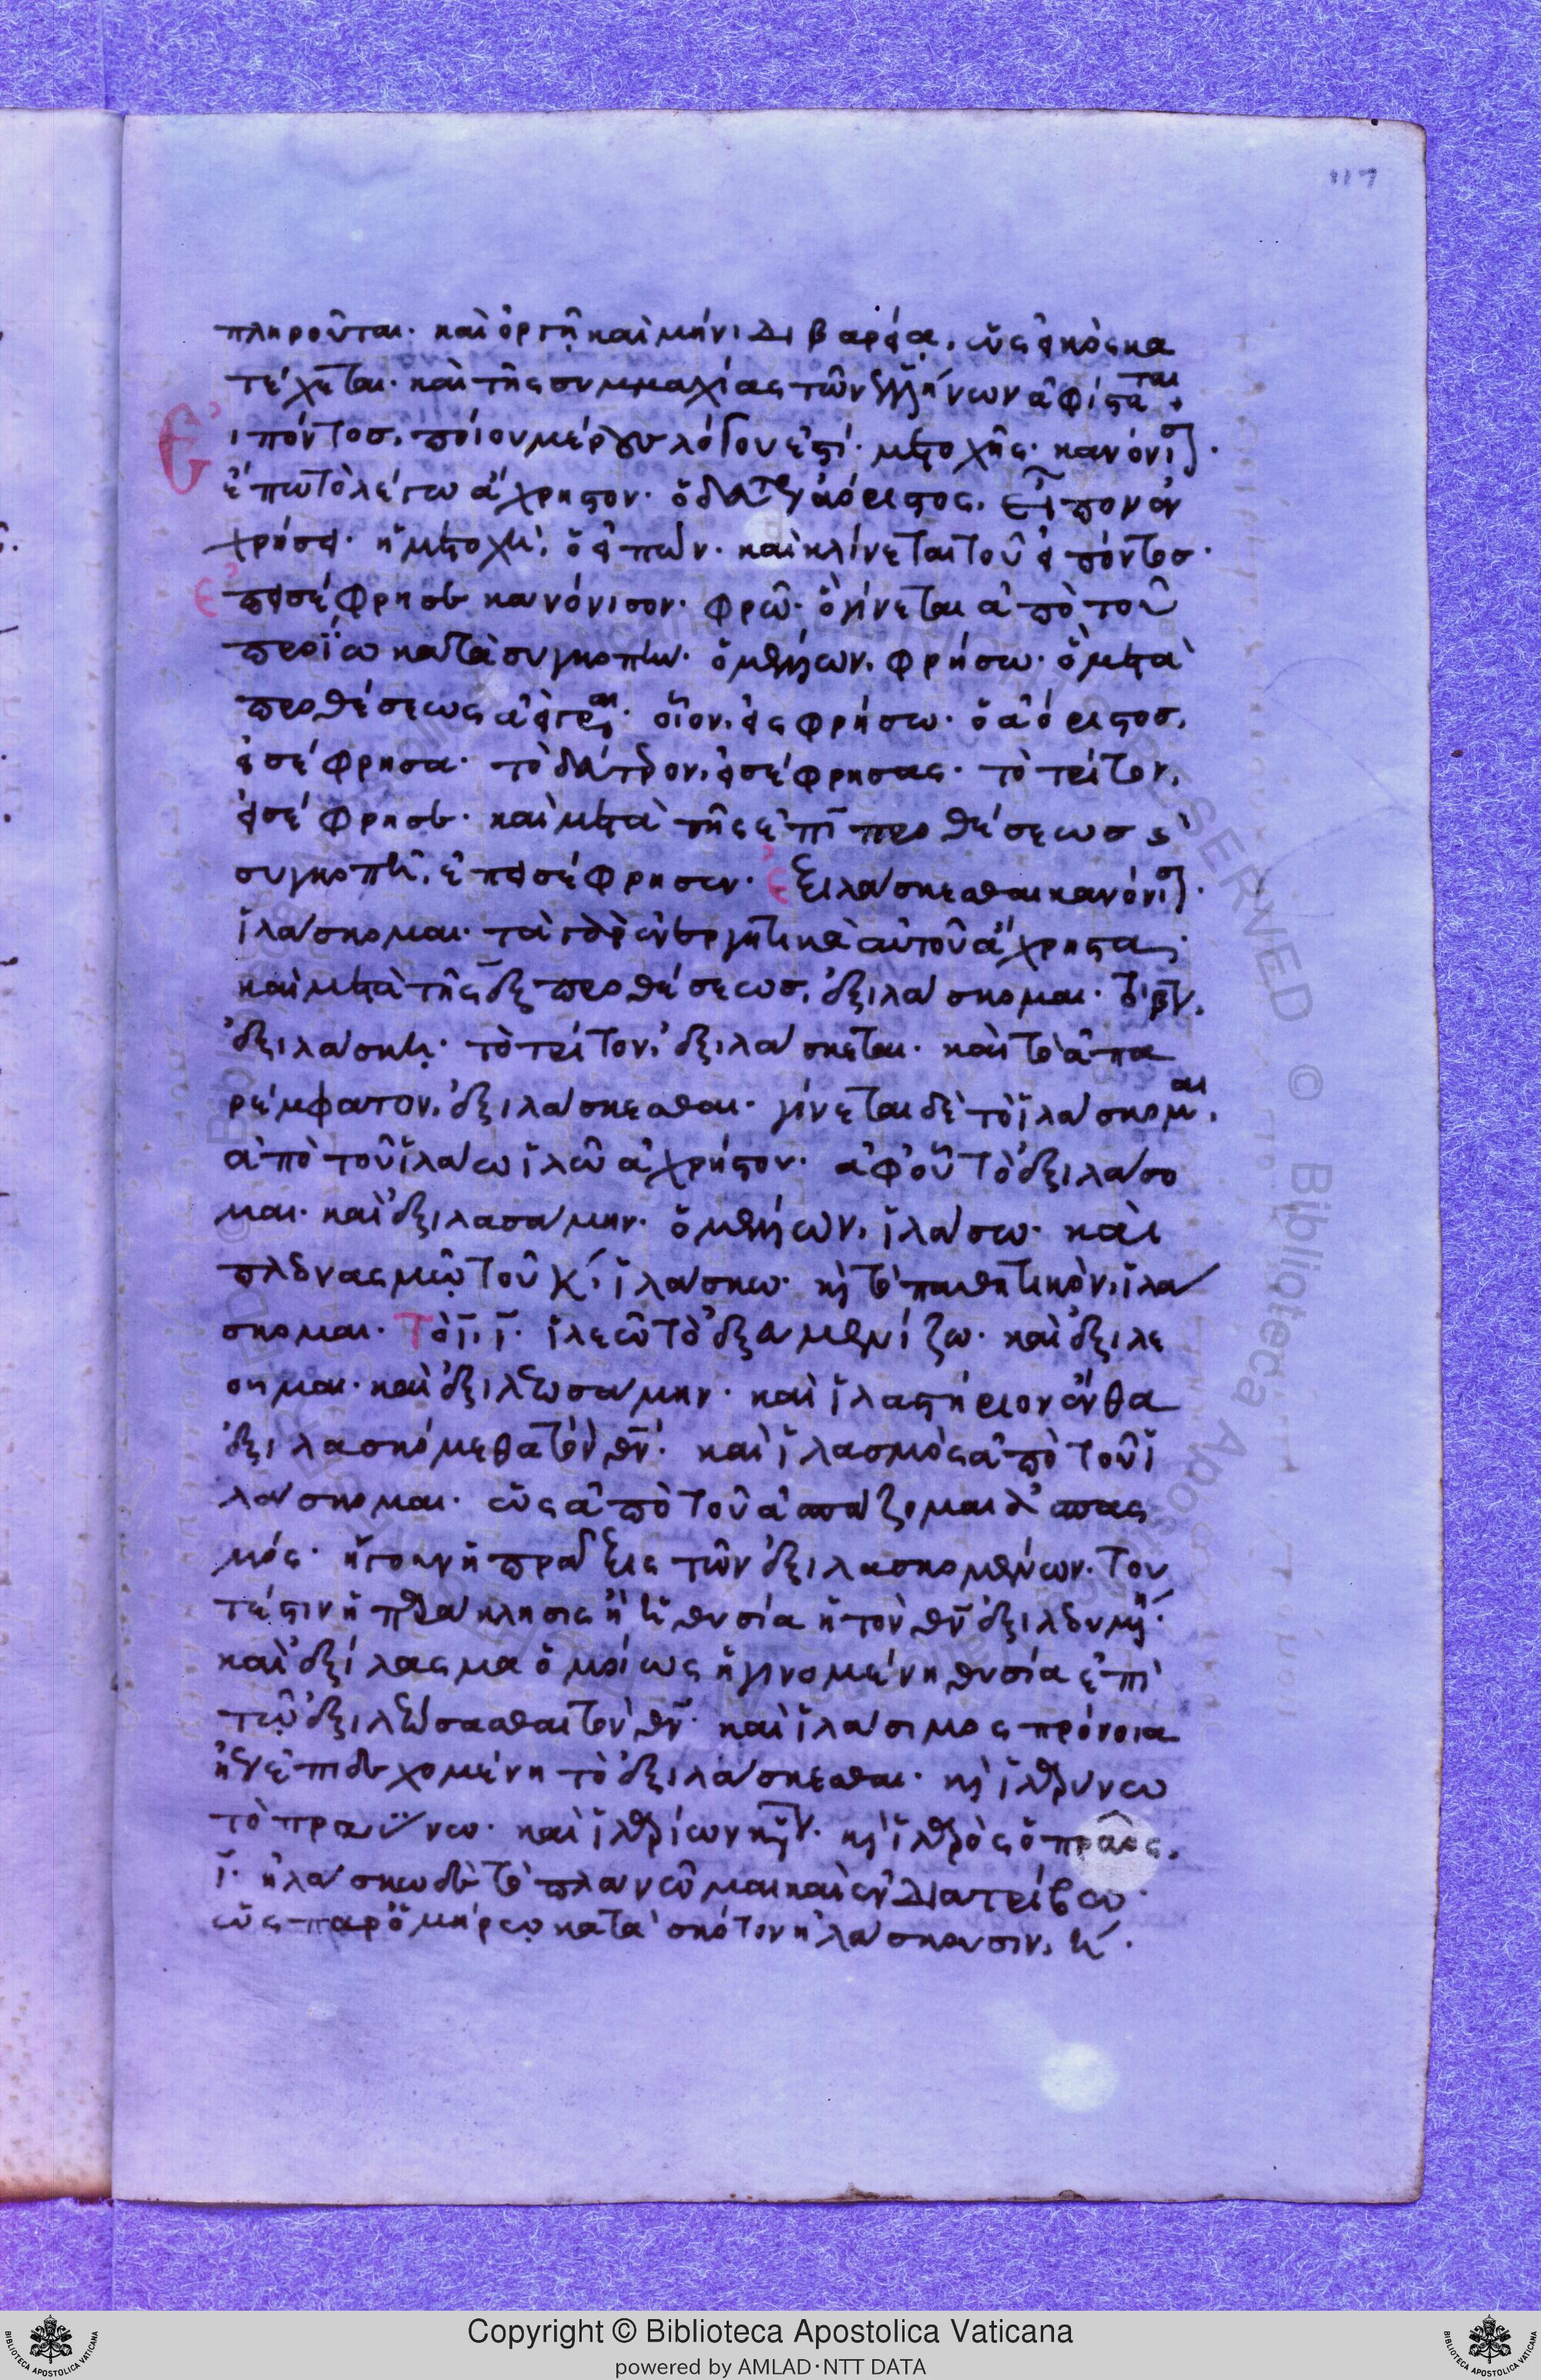 117
πληροῦται· καὶ ὀργῆ καὶ μήνιδι βαρεία, ὡς εἰκὸς κα
τέχεται· καὶ τῆς συμμαχίας τῶν ἑλλήνων ἀφίσταται·
Εἰπόντος, ποίου μέρους λόγου ἐστί· μετοχῆς· κανόνισον·
ἔπω τὸ λέγω ἄχρηστον· ὁ δεύτερος ἀόριστος, εἶπον ἐν
χρήσει· ἡ μετοχὴ, ὁ εἰπών· καὶ κλίνεται τοῦ εἰπόντος·
ἐπεισέφρησε κανόνισον· φρῶ· ὃ γίνεται ἀπὸ τοῦ
προΐω κατὰ συγκοπήν· ὁ μέλλων, φρήσω· ὃ μετὰ
προθέσεως ἀεὶ γράφεται· οἷον, εἰσφρήσω· ὁ ἀόριστος,
εἰσέφρησα· τὸ δεύτερον, εἰσέφρησας· τὸ τρίτον,
εἰσέφρησε· καὶ μετὰ τῆς ἐπὶ προθέσεως καὶ
συγκοπῆ, ἐπεισέφρησεν· ἐξιλάσκεσθαι κανόνισον·
ἱλάσκομαι· τὰ γὰρ ἐνεργητικὰ αὐτοῦ ἄχρηστα·
καὶ μετὰ τῆς ἐξ προθέσεως, ἐξιλάσκομαι· τὸ βον,
ἐξιλάσκη· τὸ τρίτον, ἐξιλάσκεται· καὶ τὸ ἀπα
ρέμφατον, ἐξιλάσκεσθαι· γίνεται δὲ τὸ ἱλάσκομαι,
ἀπὸ τοῦ ἱλάω ἱλῶ ἀχρήστου· ἀφ' οὗ τὸ ἐξιλάσο
μαι· καὶ ἐξιλασάμην· ὁ μέλλων, ἱλάσω· καὶ
πλεονασμῶ τοῦ κ, ἱλάσκω· καὶ τὸ παθητικὸν, ἱλά
σκομαι· Τὸ ϊ, ϊ· ἱλεῶ τὸ ἐξευμενίζω· καὶ ἐξιλε
οῦμαι· καὶ ἐξιλεωσάμην· καὶ ἱλαστήριον ἔνθα
ἐξιλασκόμεθα τὸν θν· καὶ ἱλασμὸς ἀπὸ τοῦ ἱ
λάσκομαι· ὡς ἀπὸ τοῦ ἀσπάζομαι ἀσπας
μός· ἤγουν ἡ πρᾶξις τῶν ἐξιλασκομένων· του
τέστιν ἡ παράκλησις ἢ ἡ θυσία ἡ τὸν θν ἐξιλεουμένη·
καὶ ἐξίλασμα ὁμοίως ἡ γινομένη θυσία ἐπὶ
τῶ ἐξιλεώσασθαι τὸν θν· καὶ ἱλάσιμος πρόνοια
ἡ ἐπιδεχομένη τὸ ἐξιλάσκεσθαι· καὶ ἱλαρύνω
τὸ πραΰνω· καὶ ἱλαρίων κύριον· καὶ ἱλαρὸς ὁ πρᾶος,
ϊ· ἠλάσκω δὲ τὸ πλανῶμαι καὶ ἐνδιατρίβω·
ὡς παρ' ὁμήρω κατὰ σκότον ἠλάσκουσιν, η·